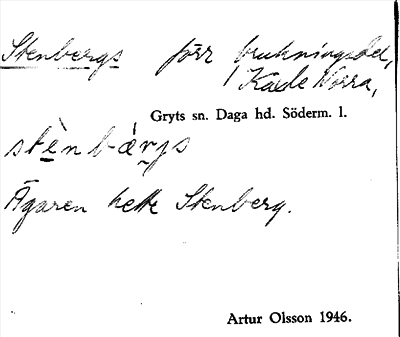 Stenbergs förr brukningsdel,
Kade Norra,
Gryts sn. Daga hd. Söderm. l.
stènbærjs
Ägaren hette Stenberg.
Artur Olsson 1946.